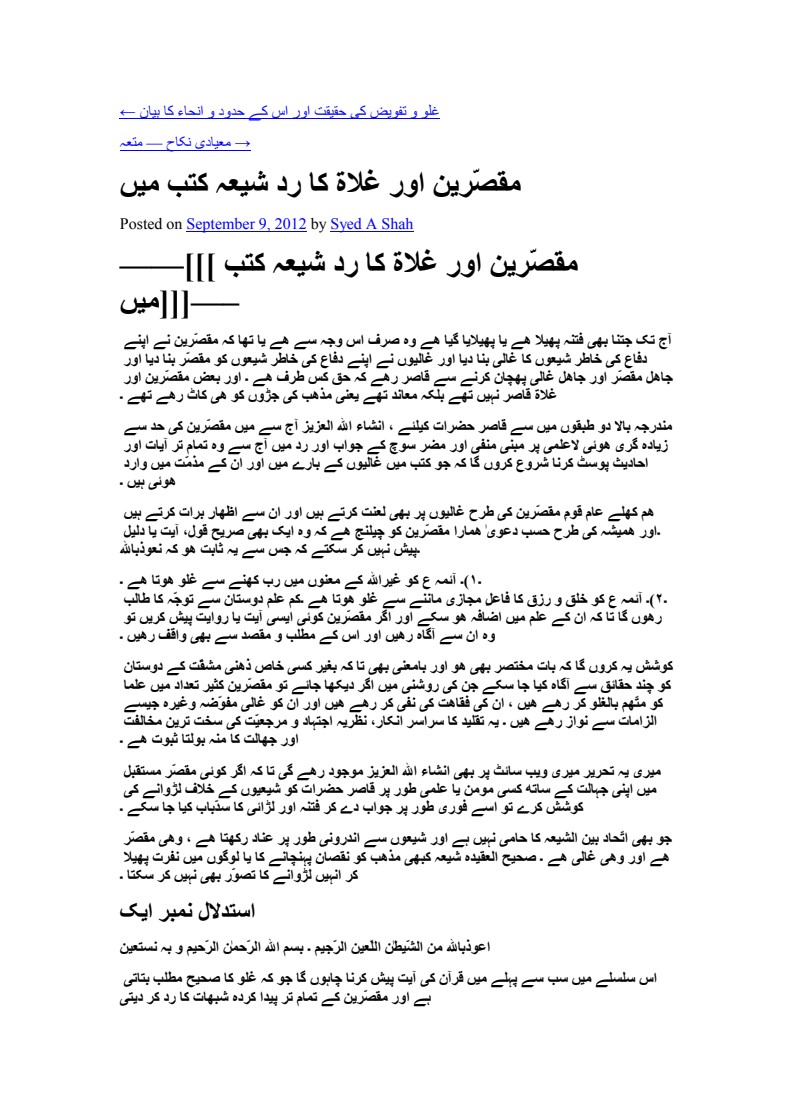 ← غلو و تفویض کی حقیقت اور اس کے حدود و انحاء کا بیان
معیادی نکاح — متعہ →
مقصّرین اور غلاة کا رد شیعہ کتب میں
Posted on September 9, 2012 by Syed A Shah
———[[[ مقصّرین اور غلاة کا رد شیعہ کتب
میں]]]——
آج تک جتنا بھی فتنہ پھیلا ھے یا پھیلایا گیا ھے وہ صرف اس وجہ سے ھے یا تھا کہ مقصّرین نے اپنے
دفاع کی خاطر شیعوں کا غالی بنا دیا اور غالیوں نے اپنے دفاع کی خاطر شیعوں کو مقصّر بنا دیا اور
جاھل مقصّر اور جاھل غالی پھچان کرنے سے قاصر رھے کہ حق کس طرف ھے ۔ اور بعض مقصّرین اور
غلاة قاصر نہیں تھے بلکہ معاند تھے یعنی مذھب کی جڑوں کو ھی کاٹ رھے تھے ۔
مندرجہ بالا دو طبقوں میں سے قاصر حضرات کیلئے ، انشاء الله العزیز آج سے میں مقصّرین کی حد سے
زیادہ گری ھوئی لاعلمی پر مبنی منفی اور مضر سوچ کے جواب اور رد میں آج سے وہ تمام تر آیات اور
احادیث پوسٹ کرنا شروع کروں گا کہ جو کتب میں غالیوں کے بارے میں اور ان کے مذمّت میں وارد
ھوئی ہیں ۔
ھم کھلے عام قوم مقصّرین کی طرح غالیوں پر بھی لعنت کرتے ہیں اور ان سے اظھار برات کرتے ہیں
.اور ھمیشہ کی طرح حسب دعویٰ ھمارا مقصّرین کو چیلنج ھے کہ وہ ایک بھی صریح قول، آیت یا دلیل
.پیش نہیں کر سکتے کہ جس سے یہ ثابت ھو کہ نعوذبالله
.۱)۔ آئمہ ع کو غیرالله کے معنوں میں رب کھنے سے غلو ھوتا ھے ۔
.۲)۔ آئمہ ع کو خلق و رزق کا فاعل مجازی ماننے سے غلو ھوتا ھے .کم علم دوستان سے توجّہ کا طالب
رھوں گا تا کہ ان کے علم میں اضافہ ھو سکے اور اگر مقصّرین کوئی ایسی آیت یا روایت پیش کریں تو
وہ ان سے آگاہ رھیں اور اس کے مطلب و مقصد سے بھی واقف رھیں ۔
کوشش یہ کروں گا کہ بات مختصر بھی ھو اور بامعنی بھی تا کہ بغیر کسی خاص ذھنی مشقّت کے دوستان
کو چند حقائق سے آگاہ کیا جا سکے جن کی روشنی میں اگر دیکھا جائے تو مقصّرین کثیر تعداد میں علما
کو متّھم بالغلو کر رھے ھیں ، ان کی فقاھت کی نفی کر رھے ھیں اور ان کو غالی مفوّضہ وغیرہ جیسے
الزامات سے نواز رھے ھیں ۔ یہ تقلید کا سراسر انکار، نظریہ اجتہاد و مرجعیّت کی سخت ترین مخالفت
اور جھالت کا منہ بولتا ثبوت ھے ۔
میری یہ تحریر میری ویب سائٹ پر بھی انشاء الله العزیز موجود رھے گی تا کہ اگر کوئی مقصّر مستقبل
میں اپنی جہالت کے ساتھ کسی مومن یا علمی طور پر قاصر حضرات کو شیعیوں کے خلاف لڑوانے کی
کوشش کرے تو اسے فوری طور پر جواب دے کر فتنہ اور لڑائی کا سدّباب کیا جا سکے ۔
جو بھی اتّحاد بین الشیعہ کا حامی نہیں ہے اور شیعوں سے اندرونی طور پر عناد رکھتا ھے ، وھی مقصّر
ھے اور وھی غالی ھے ۔ صحیح العقیدہ شیعہ کبھی مذھب کو نقصان پہنچانے کا یا لوگوں میں نفرت پھیلا
کر انہیں لڑوانے کا تصوّر بھی نہیں کر سکتا ۔
استدلال نمبر ایک
اعوذبالله من الشّیطٰن اللّعین الرّجیم ۔ بسم الله الرّحمنٰ الرّحیم و بہ نستعین
اس سلسلے میں سب سے پہلے میں قرآن کی آیت پیش کرنا چاہوں گا جو کہ غلو کا صحیح مطلب بتاتی
ہے اور مقصّرین کے تمام تر پیدا کردہ شبھات کا رد کر دیتی